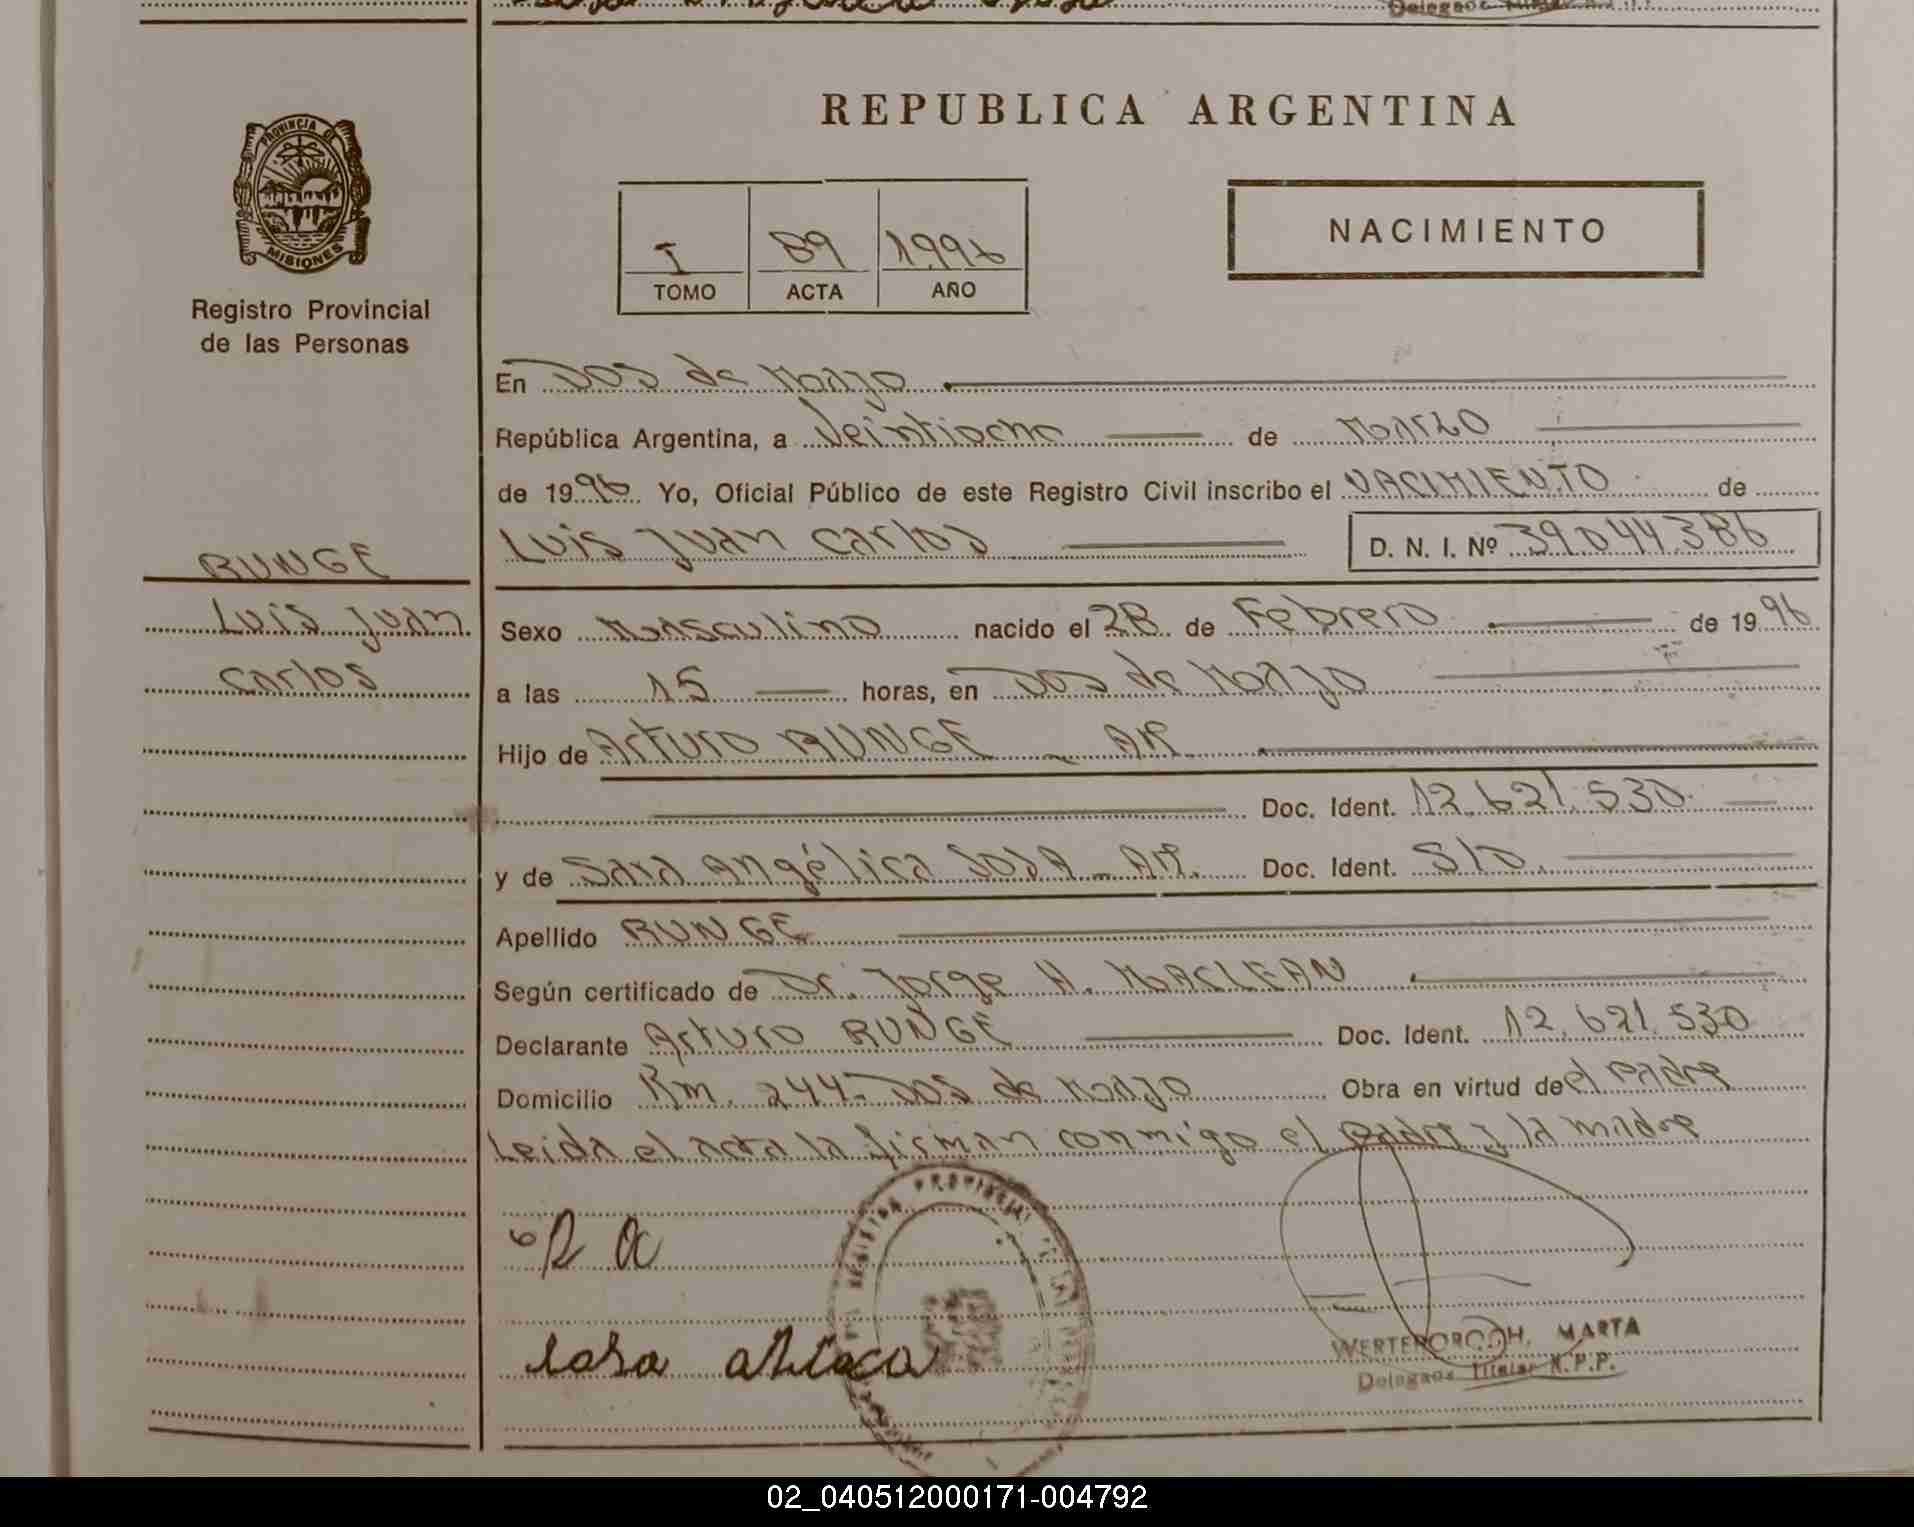 PROVINCIA DE
MISIONES
Registro Provincial
de las Personas
RUNGE
Luis Juan
Carlos
REPUBLICA ARGENTINA
I 89 1996
TOMO ACTA AÑO
NACIMIENTO
En Dos de Mayo
República Argentina, a Veintiocho de Marzo
de 1996 Yo, Oficial Público de este Registro Civil inscribo el NACIMIENTO de
Luis Juan Carlos D. N. I. Nº 39044386
Sexo Masculino nacido el 28 de Febrero de 1996
a las 15 horas, en Dos de Mayo
Hijo de Arturo RUNGE - AR
Doc. Ident. 12.621.530
y de Sara Angélica SOSA - AR. Doc. Ident. S/D
Apellido RUNGE
Según certificado de Dr. Jorge H. MACLEAN
Declarante Arturo RUNGE Doc. Ident. 12.621.530
Domicilio Km. 244 - Dos de Mayo Obra en virtud de el padre
Leida el acta la firman conmigo el padre y la madre
REGISTRO PROVINCIAL DE LAS PERSONAS
MARTA
Titular R.P.P.
02_040512000171-004792